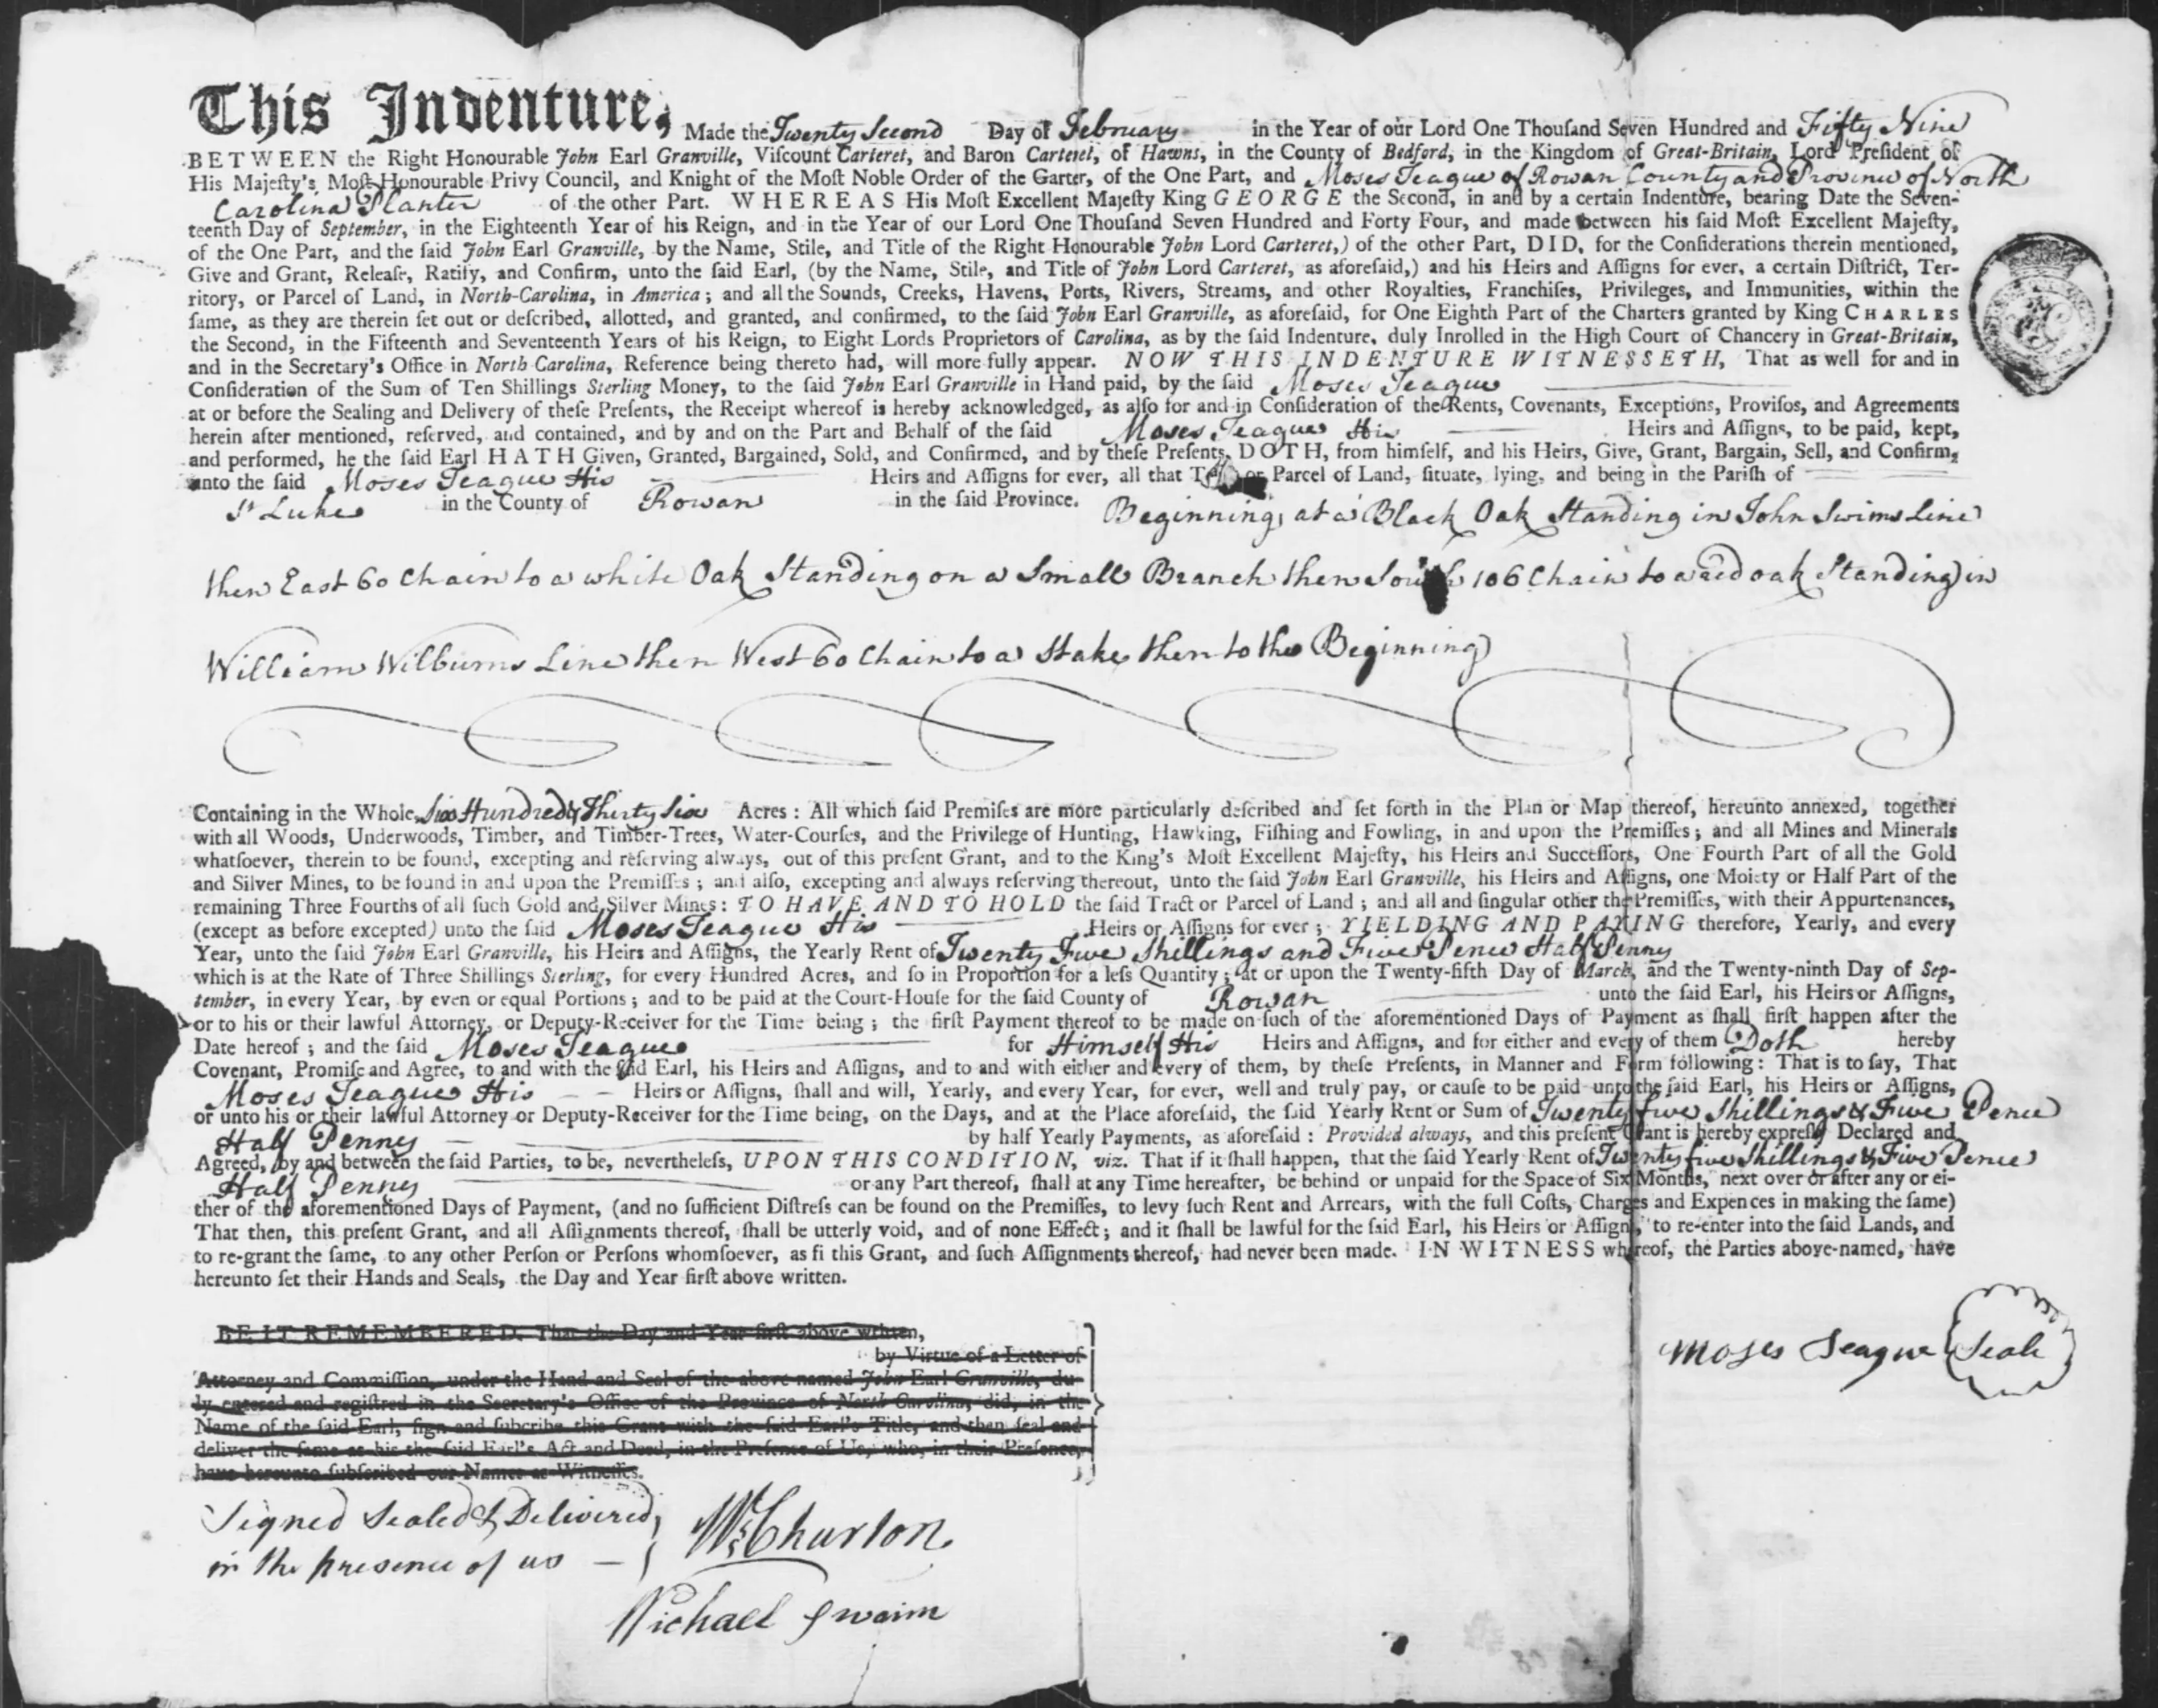 This Indenture, Made the Twenty Second Day of February in the Year of our Lord One Thouſand Seven Hundred and Fifty Nine
BETWEEN the Right Honourable John Earl Granville, Viſcount Carteret, and Baron Carteret, of Hawns, in the County of Bedford, in the Kingdom of Great-Britain, Lord Preſident of
His Majeſty's Moſt Honourable Privy Council, and Knight of the Moſt Noble Order of the Garter, of the One Part, and Moses Teague of Rowan County and Province of North
Carolina Planter of the other Part. WHEREAS His Moſt Excellent Majeſty King GEORGE the Second, in and by a certain Indenture, bearing Date the Seven-
teenth Day of September, in the Eighteenth Year of his Reign, and in the Year of our Lord One Thouſand Seven Hundred and Forty Four, and made between his ſaid Moſt Excellent Majeſty,
of the One Part, and the ſaid John Earl Granville, by the Name, Stile, and Title of the Right Honourable John Lord Carteret,) of the other Part, DID, for the Conſiderations therein mentioned,
Give and Grant, Releaſe, Ratify, and Confirm, unto the ſaid Earl, (by the Name, Stile, and Title of John Lord Carteret, as aforeſaid,) and his Heirs and Aſſigns for ever, a certain Diſtrict, Ter-
ritory, or Parcel of Land, in North-Carolina, in America; and all the Sounds, Creeks, Havens, Ports, Rivers, Streams, and other Royalties, Franchiſes, Privileges, and Immunities, within the
ſame, as they are therein ſet out or deſcribed, allotted, and granted, and confirmed, to the ſaid John Earl Granville, as aforeſaid, for One Eighth Part of the Charters granted by King CHARLES
the Second, in the Fifteenth and Seventeenth Years of his Reign, to Eight Lords Proprietors of Carolina, as by the ſaid Indenture, duly Inrolled in the High Court of Chancery in Great-Britain,
and in the Secretary's Office in North Carolina, Reference being thereto had, will more fully appear. NOW THIS INDENTURE WITNESSETH, That as well for and in
Conſideration of the Sum of Ten Shillings Sterling Money, to the ſaid John Earl Granville in Hand paid, by the ſaid Moses Teague
at or before the Sealing and Delivery of theſe Preſents, the Receipt whereof is hereby acknowledged, as alſo for and in Conſideration of the Rents, Covenants, Exceptions, Proviſos, and Agreements
herein after mentioned, reſerved, and contained, and by and on the Part and Behalf of the ſaid Moses Teague His Heirs and Aſſigns, to be paid, kept,
and performed, he the ſaid Earl HATH Given, Granted, Bargained, Sold, and Confirmed, and by theſe Preſents, DOTH, from himſelf, and his Heirs, Give, Grant, Bargain, Sell, and Confirm,
unto the ſaid Moses Teague His Heirs and Aſſigns for ever, all that or Parcel of Land, ſituate, lying, and being in the Pariſh of
St Lukes in the County of Rowan in the ſaid Province. Beginning at a Black Oak Standing in John Swims Line
then East 60 Chain to a white Oak Standing on a Small Branch then South 106 Chain to a red oak Standing in
William Wilburns Line then West 60 Chain to a Stake then to the Beginning
Containing in the Whole, Six Hundred & Thirty Six Acres: All which ſaid Premiſes are more particularly deſcribed and ſet forth in the Plan or Map thereof, hereunto annexed, together
with all Woods, Underwoods, Timber, and Timber-Trees, Water-Courſes, and the Privilege of Hunting, Hawking, Fiſhing and Fowling, in and upon the Premiſſes; and all Mines and Minerals
whatſoever, therein to be found, excepting and reſerving always, out of this preſent Grant, and to the King's Moſt Excellent Majeſty, his Heirs and Succeſſors, One Fourth Part of all the Gold
and Silver Mines, to be found in and upon the Premiſſes; and alſo, excepting and always reſerving thereout, unto the ſaid John Earl Granville, his Heirs and Aſſigns, one Moiety or Half Part of the
remaining Three Fourths of all ſuch Gold and Silver Mines: TO HAVE AND TO HOLD the ſaid Tract or Parcel of Land; and all and ſingular other the Premiſſes, with their Appurtenances,
(except as before excepted) unto the ſaid Moses Teague His Heirs or Aſſigns for ever; YIELDING AND PAYING therefore, Yearly, and every
Year, unto the ſaid John Earl Granville, his Heirs and Aſſigns, the Yearly Rent of Twenty Five Shillings and Five Pence Half Penny
which is at the Rate of Three Shillings Sterling, for every Hundred Acres, and ſo in Proportion for a leſs Quantity; at or upon the Twenty-fifth Day of March, and the Twenty-ninth Day of Sep-
tember, in every Year, by even or equal Portions; and to be paid at the Court-Houſe for the ſaid County of Rowan unto the ſaid Earl, his Heirs or Aſſigns,
or to his or their lawful Attorney, or Deputy-Receiver for the Time being; the firſt Payment thereof to be made on ſuch of the aforementioned Days of Payment as ſhall firſt happen after the
Date hereof; and the ſaid Moses Teague for Himself His Heirs and Aſſigns, and for either and every of them Doth hereby
Covenant, Promiſe and Agree, to and with the ſaid Earl, his Heirs and Aſſigns, and to and with either and every of them, by theſe Preſents, in Manner and Form following: That is to ſay, That
Moses Teague His Heirs or Aſſigns, ſhall and will, Yearly, and every Year, for ever, well and truly pay, or cauſe to be paid unto the ſaid Earl, his Heirs or Aſſigns,
or unto his or their lawful Attorney or Deputy-Receiver for the Time being, on the Days, and at the Place aforeſaid, the ſaid Yearly Rent or Sum of Twenty five Shillings & Five Pence
Half Penny by half Yearly Payments, as aforeſaid: Provided always, and this preſent Grant is hereby expreſly Declared and
Agreed, by and between the ſaid Parties, to be, nevertheleſs, UPON THIS CONDITION, viz. That if it ſhall happen, that the ſaid Yearly Rent of Twenty five Shillings & Five Pence
Half Penny or any Part thereof, ſhall at any Time hereafter, be behind or unpaid for the Space of Six Months, next over or after any or ei-
ther of the aforementioned Days of Payment, (and no ſufficient Diſtreſs can be found on the Premiſſes, to levy ſuch Rent and Arrears, with the full Coſts, Charges and Expences in making the ſame)
That then, this preſent Grant, and all Aſſignments thereof, ſhall be utterly void, and of none Effect; and it ſhall be lawful for the ſaid Earl, his Heirs or Aſſigns, to re-enter into the ſaid Lands, and
to re-grant the ſame, to any other Perſon or Perſons whomſoever, as fi this Grant, and ſuch Aſſignments thereof, had never been made. IN WITNESS whereof, the Parties above-named, have
hereunto ſet their Hands and Seals, the Day and Year firſt above written.
BE IT REMEMBERED, That the Day and Year firſt above written,
by Virtue of a Letter of
Attorney and Commiſſion, under the Hand and Seal of the above named John Earl Granville, du-
ly entered and regiſtred in the Secretary's Office of the Province of North Carolina, did, in the
Name of the ſaid Earl, ſign and ſubcribe this Grant with the ſaid Earl's Title, and then ſeal and
deliver the ſame as his the ſaid Earl's Act and Deed, in the Preſence of Us, who, in their Preſence,
have hereunto ſubſcribed our Names as Witneſſes.
Moses Teague Seale
Signed Sealed & Delivered
in the presence of us
Ws Churton.
Michael Swaim